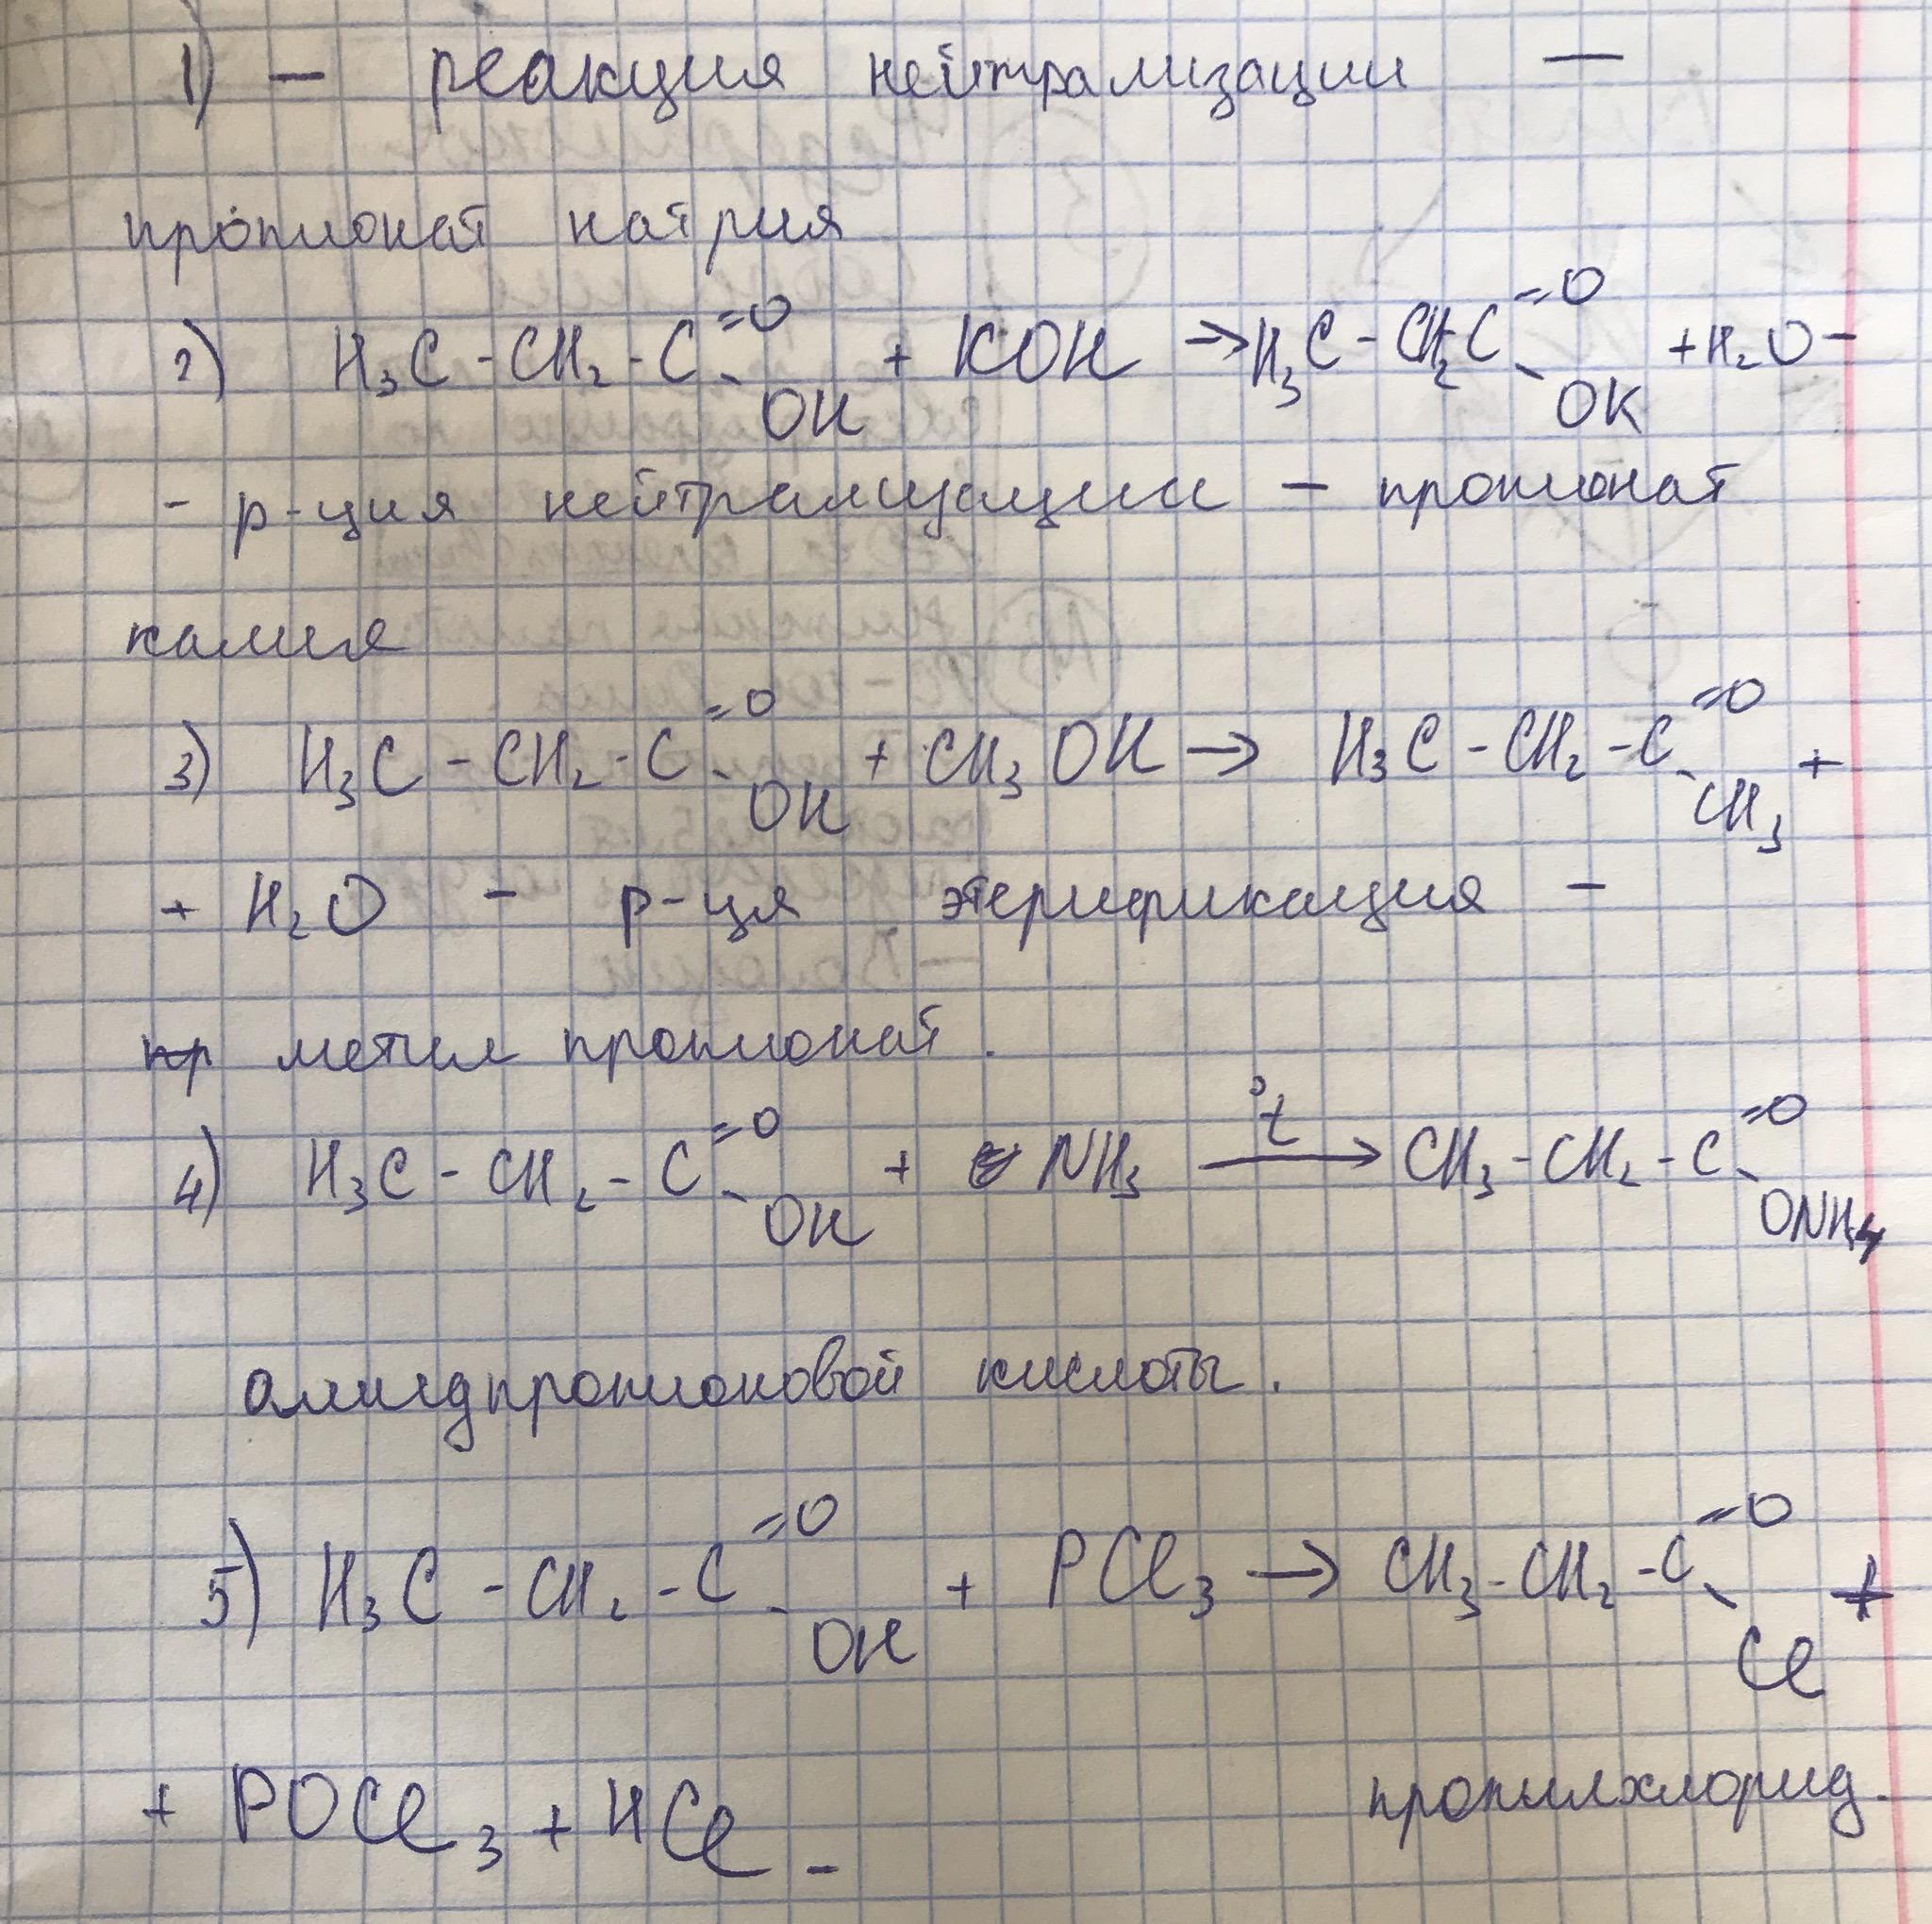 1) — реакция нейтрализации —
пропионат натрия
2) H₃C - CH₂ - C =O - OH + KOH → H₃C - CH₂ C =O - OK + H₂O -
- р-ция нейтрализации - пропионат
калия
3) H₃C - CH₂ - C =O - OH + CH₃OH → H₃C - CH₂ - C =O - CH₃ +
+ H₂O - р-ця этерификация -
пр метил пропионат.
4) H₃C - CH₂ - C =O - OH + NH₃ t° → CH₃ - CH₂ - C =O - ONH₄
амидпропионовой кислоты.
5) H₃C - CH₂ - C =O - OH + PCl₃ → CH₃ - CH₂ - C =O - Cl +
+ POCl₃ + HCl - пропилхлорид.